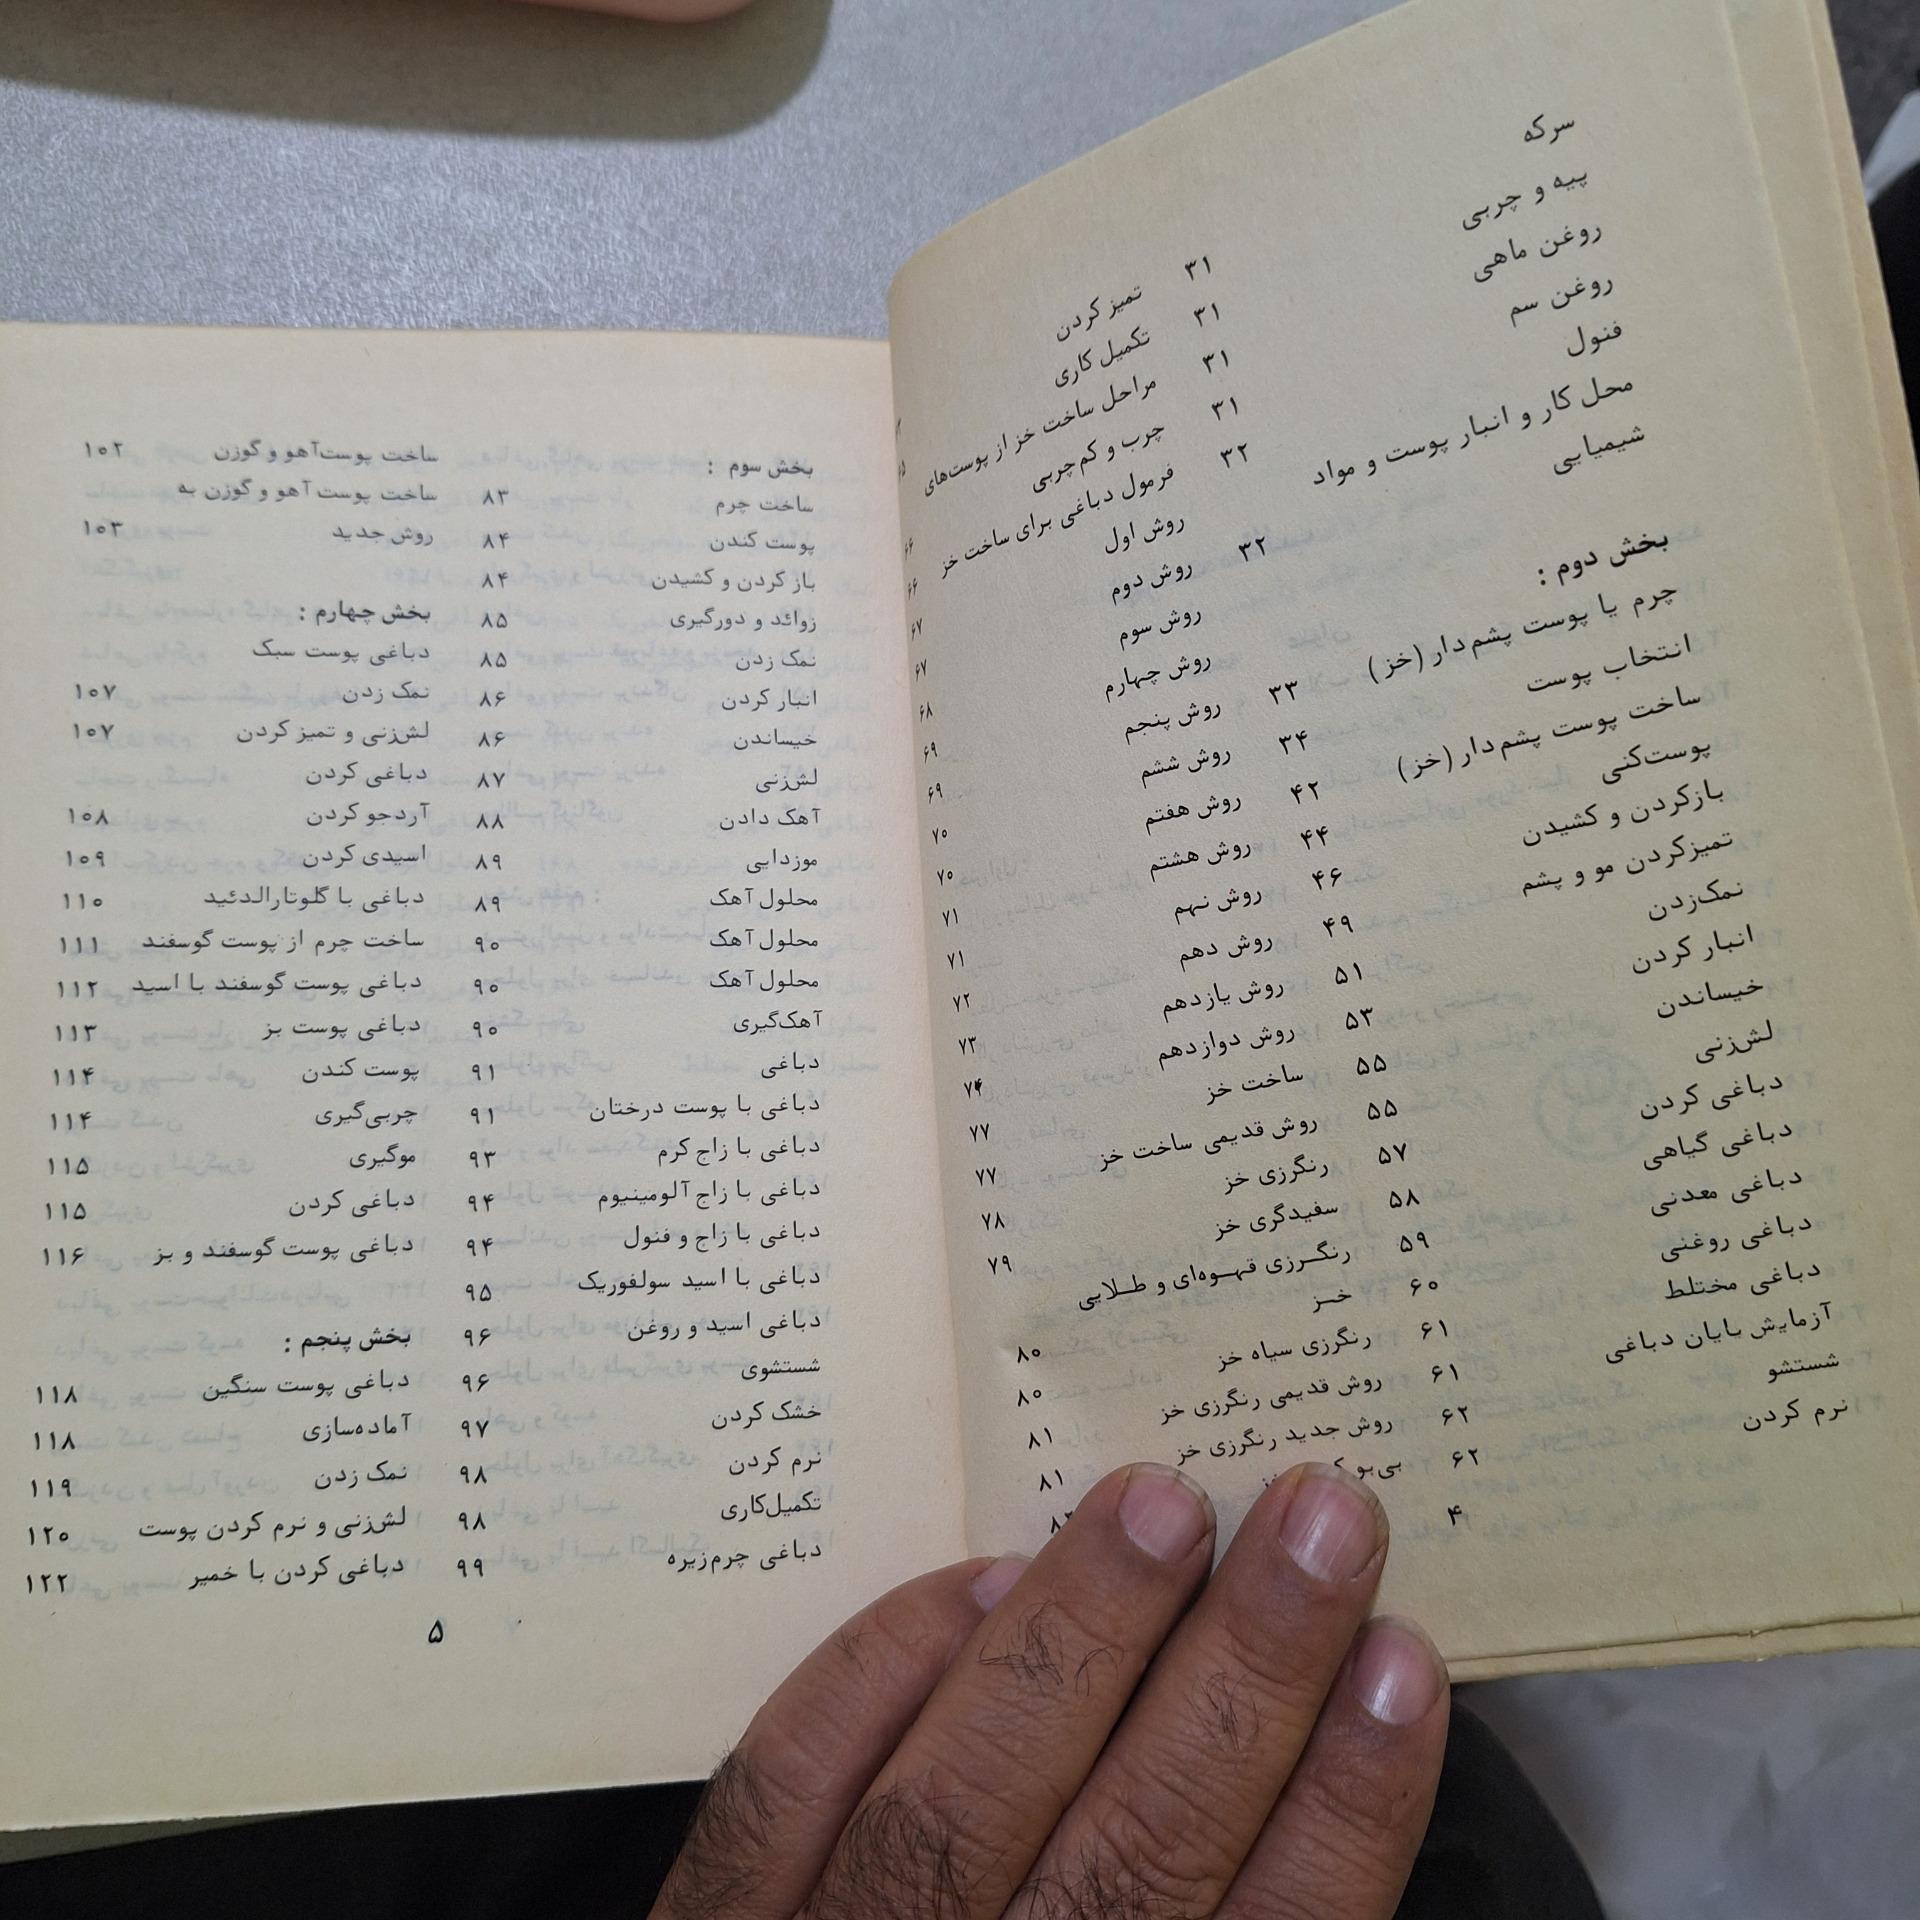 سرکه ۳۱
پیه و چربی ۳۱
روغن ماهی ۳۱
روغن سم ۳۱
فنول ۳۲
محل کار و انبار پوست و مواد
شیمیایی ۳۲
بخش دوم :
چرم یا پوست پشم‌دار (خز) ۳۳
انتخاب پوست ۳۴
ساخت پوست پشم‌دار (خز) ۴۲
پوست‌کنی ۴۴
بازکردن و کشیدن ۴۶
تمیزکردن مو و پشم ۴۹
نمک‌زدن ۵۱
انبار کردن ۵۳
خیساندن ۵۵
لش‌زنی ۵۵
دباغی کردن ۵۷
دباغی گیاهی ۵۸
دباغی معدنی ۵۹
دباغی روغنی ۶۰
دباغی مختلط ۶۱
آزمایش پایان دباغی ۶۱
شستشو ۶۲
نرم کردن ۶۲
تمیز کردن
تکمیل کاری
مراحل ساخت خز از پوست‌های
چرب و کم‌چربی
فرمول دباغی برای ساخت خز ۶۶
روش اول ۶۶
روش دوم ۶۷
روش سوم ۶۷
روش چهارم ۶۸
روش پنجم ۶۹
روش ششم ۶۹
روش هفتم ۷۰
روش هشتم ۷۰
روش نهم ۷۱
روش دهم ۷۱
روش یازدهم ۷۲
روش دوازدهم ۷۳
ساخت خز ۷۴
روش قدیمی ساخت خز ۷۷
رنگرزی خز ۷۷
سفیدگری خز ۷۸
رنگـرزی قهـوه‌ای و طـلایی ۷۹
خـز ۸۰
رنگرزی سیاه خز ۸۰
روش قدیمی رنگرزی خز ۸۱
روش جدید رنگرزی خز ۸۱
بی‌بو
۴
بخش سوم :
ساخت چرم ۸۳
پوست کندن ۸۴
باز کردن و کشیدن ۸۴
زوائد و دورگیری ۸۵
نمک زدن ۸۵
انبار کردن ۸۶
خیساندن ۸۶
لش‌زنی ۸۷
آهک دادن ۸۸
موزدایی ۸۹
محلول آهک ۸۹
محلول آهک ۹۰
محلول آهک ۹۰
آهک‌گیری ۹۰
دباغی ۹۱
دباغی با پوست درختان ۹۱
دباغی با زاج کرم ۹۳
دباغی با زاج آلومینیوم ۹۴
دباغی با زاج و فنول ۹۴
دباغی با اسید سولفوریک ۹۵
دباغی اسید و روغن ۹۶
شستشوی ۹۶
خشک کردن ۹۷
نرم کردن ۹۸
تکمیل‌کاری ۹۸
دباغی چرم‌زیره ۹۹
ساخت پوست‌آهو و گوزن ۱۰۲
ساخت پوست آهو و گوزن به
روش جدید ۱۰۳
بخش چهارم :
دباغی پوست سبک ۱۰۷
نمک زدن ۱۰۷
لش‌زنی و تمیز کردن
دباغی کردن ۱۰۸
آردجو کردن ۱۰۹
اسیدی کردن
دباغی با گلوتارالدئید ۱۱۰
ساخت چرم از پوست گوسفند ۱۱۱
دباغی پوست گوسفند با اسید ۱۱۲
دباغی پوست بز ۱۱۳
پوست کندن ۱۱۴
چربی‌گیری ۱۱۴
موگیری ۱۱۵
دباغی کردن ۱۱۵
دباغی پوست گوسفند و بز ۱۱۶
بخش پنجم :
دباغی پوست سنگین ۱۱۸
آماده‌سازی ۱۱۸
نمک زدن ۱۱۹
لش‌زنی و نرم کردن پوست ۱۲۰
دباغی کردن با خمیر ۱۲۲
۵